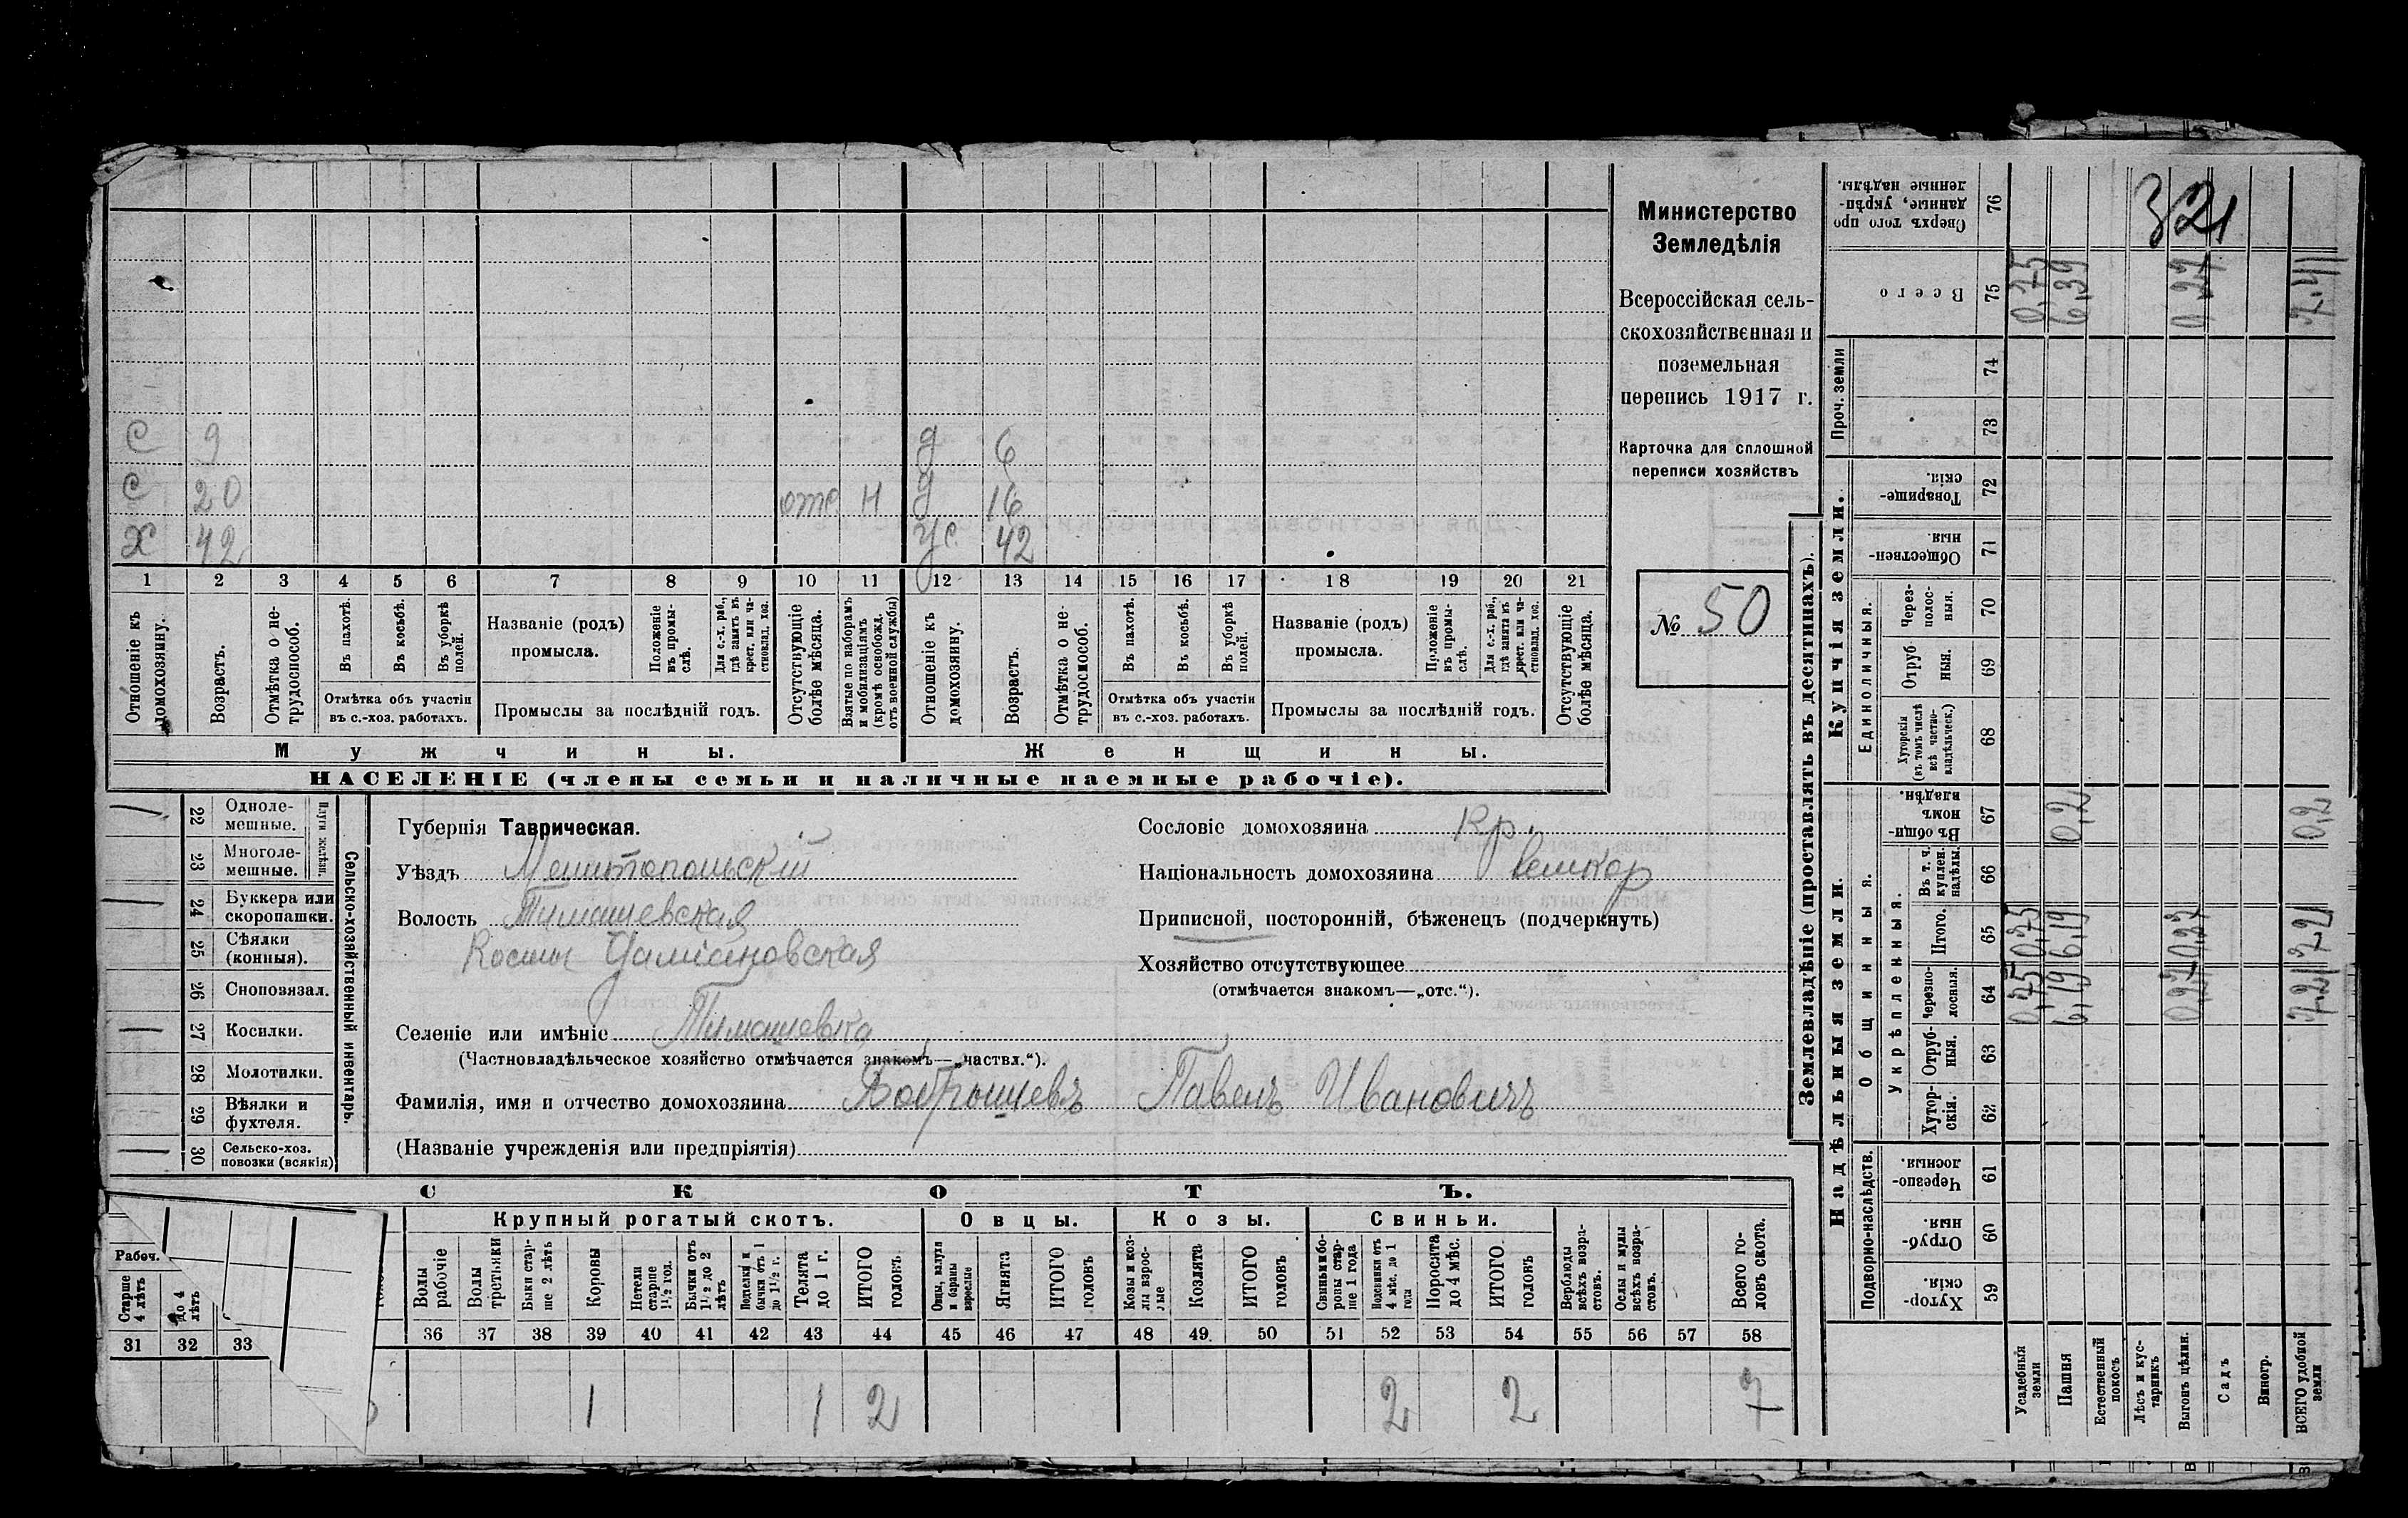 С 9 д 6
С 20 отс Н д 16
Х 42 ус 42
1 2 3 4 5 6 7 8 9 10 11 12 13 14 15 16 17 18 19 20 21
Отношеніе къ домохозяину.
Возрастъ.
Отмѣтка о нетрудоспособ.
Въ пахотѣ.
Въ косьбѣ.
Въ уборкѣ полей.
Отмѣтка объ участіи въ с.-хоз. работахъ.
Названіе (родъ) промысла.
Положеніе въ промыслѣ.
Для с.-х. раб., гдѣ занятъ въ крест. или частновлад. хоз.
Промыслы за послѣдній годъ.
Отсутствующіе болѣе мѣсяца.
Взятые по наборамъ и мобилизаціямъ (кромѣ освобожд. отъ военной службы)
Отношеніе къ домохозяину.
Возрастъ.
Отмѣтка о нетрудоспособ.
Въ пахотѣ.
Въ косьбѣ.
Въ уборкѣ полей.
Отмѣтка объ участіи въ с.-хоз. работахъ.
Названіе (родъ) промысла.
Положеніе въ промыслѣ.
Для с.-х. раб., гдѣ занята въ крест. или частновлад. хоз.
Промыслы за послѣдній годъ.
Отсутствующіе болѣе мѣсяца.
Мужчины. Женщины.
НАСЕЛЕНІЕ (члены семьи и наличные наемные рабочіе).
Министерство
Земледѣлія
Всероссійская сель-
скохозяйственная и
поземельная
перепись 1917 г.
Карточка для сплошной
переписи хозяйствъ
№ 50
Сельско-хозяйственный инвентарь.
Плуги желѣзн.
— 22 Одноле-
мешные.
23 Многоле-
мешные.
— 24 Буккера или
скоропашки.
25 Сѣялки
(конныя).
26 Сноповязал.
— 27 Косилки.
28 Молотилки.
— 29 Вѣялки и
фухтеля.
— 30 Сельско-хоз.
повозки (всякія)
Губернія Таврическая.
Уѣздъ Мелитопольскій
Волость Тимашевская
Косьмы Даміановская
Селеніе или имѣніе Тимашевка
(Частновладѣльческое хозяйство отмѣчается знакомъ—„частвл.“).
Фамилія, имя и отчество домохозяина Бобрышевъ Павелъ Ивановичъ
(Названіе учрежденія или предпріятія)
Сословіе домохозяина Кр.
Національность домохозяина великор
Приписной, посторонній, бѣженецъ (подчеркнуть)
Хозяйство отсутствующее
(отмѣчается знакомъ—„отс.“).
СКОТЪ.
Рабоч.
Старше 4 лѣтъ
До 4 лѣтъ
31 32 33
Крупный рогатый скотъ. Овцы. Козы. Свиньи.
Волы рабочіе
Волы третьяки
Быки старше 2 лѣтъ
Коровы
Нетели старше 1½ год.
Бычки отъ 1½ до 2 лѣтъ
Подтелки и бычки отъ 1 до 1½ г.
Телята до 1 г.
ИТОГО головъ
Овцы, валухи и бараны взрослые
Ягнята
ИТОГО головъ
Козы и козлы взрослые
Козлята
ИТОГО головъ
Свиньи и боровы старше 1 года
Подсвинки отъ 4 мѣс. до 1 года
Поросята до 4 мѣс.
ИТОГО головъ
Верблюды всѣхъ возрастовъ.
Ослы и мулы всѣхъ возрастовъ.
Всего головъ скота.
36 37 38 39 40 41 42 43 44 45 46 47 48 49 50 51 52 53 54 55 56 57 58
1 1 2 2 2 7
Землевладѣніе (проставлять въ десятинахъ).
321
Сверхъ того проданные, укрѣпленные надѣлы. 76
Всего 75 0,75 6,39 0,27 7,41
Проч. земли 74 73
Купчія земли.
Товарищескія. 72
Общественныя. 71
Единоличныя.
Черезполосныя. 70
Отрубныя. 69
Хуторскія (въ томъ числѣ всѣ частновладѣльческ.) 68
Надѣльныя земли.
Общинныя.
Въ общинномъ владѣн. 67 0,2 0,2
Укрѣпленныя.
Въ т. ч. куплен. надѣлы. 66
Итого. 65 0,75 6,19 0,27 7,21
Черезполосныя. 64 0,75 6,19 0,27 7,21
Отрубныя. 63
Хуторскія. 62
Подворно-наслѣдств.
Черезполосныя. 61
Отрубныя. 60
Хуторскія. 59
Усадебныя земли
Пашня
Естественный покосъ
Лѣсъ и кустарникъ
Выгонъ цѣлин.
Садъ
Виногр.
ВСЕГО удобной земли